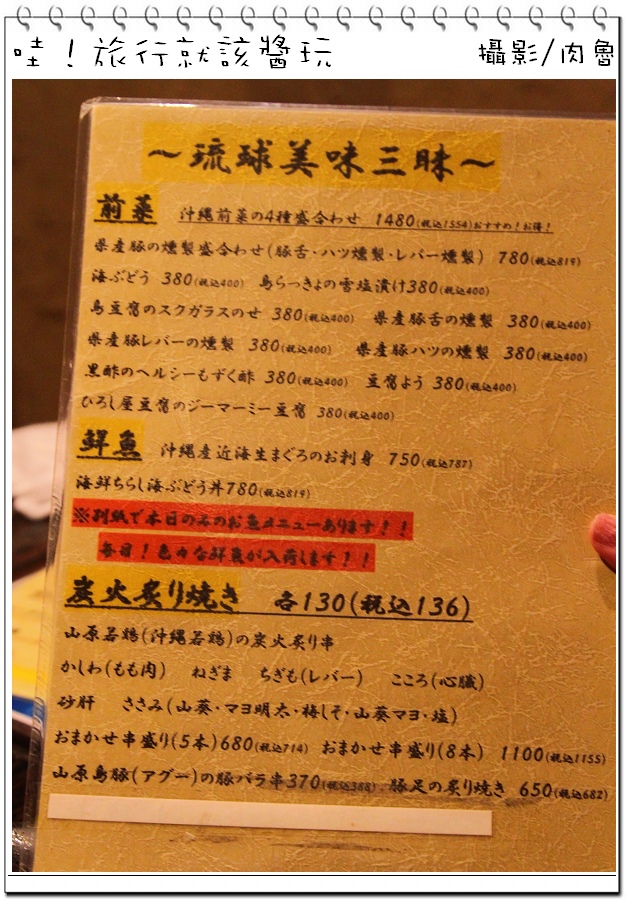 哇！旅行就該醬玩 攝影/肉魯
～琉球美味三昧～
前菜 沖縄前菜の4種盛合わせ 1480(税込1554)おすすめ！お得！
県産豚の燻製盛合わせ(豚舌・ハツ燻製・レバー燻製) 780(税込819)
海ぶどう 380(税込400) 島らっきょの雪塩漬け380(税込400)
島豆腐のスクガラスのせ 380(税込400) 県産豚舌の燻製 380(税込400)
県産豚レバーの燻製 380(税込400) 県産豚ハツの燻製 380(税込400)
黒酢のヘルシーもずく酢 380(税込400) 豆腐よう 380(税込400)
ひろし屋豆腐のジーマーミー豆腐 380(税込400)
鮮魚 沖縄産近海生まぐろのお刺身 750(税込787)
海鮮ちらし海ぶどう丼780(税込819)
※別紙で本日のそのお魚メニューあります！！
毎日！色々な鮮魚が入荷します！！
炭火炙り焼き 各130(税込136)
山原若鶏(沖縄若鶏)の炭火炙り串
かしわ(もも肉) ねぎま ちぎも(レバー) こころ(心臓)
砂肝 ささみ(山葵・マヨ明太・梅しそ・山葵マヨ・塩)
おまかせ串盛り(5本)680(税込714) おまかせ串盛り(8本) 1100(税込1155)
山原島豚(アグー)の豚バラ串370(税込388) 豚足の炙り焼き 650(税込682)